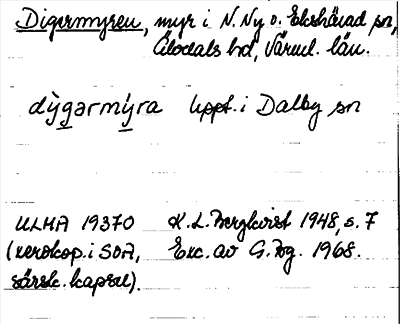 Digermyren, myr i N. Ny o. Ekshärad sn,
Älvdals hd, Värml. län.
dỳgərmỳra Uppt. i Dalby sn
ULMA 19370 K. L. Bergkvist 1948, s. 7
(xerokop. i SOA, Exc. av G. Bg. 1968.
särsk. kapsel).